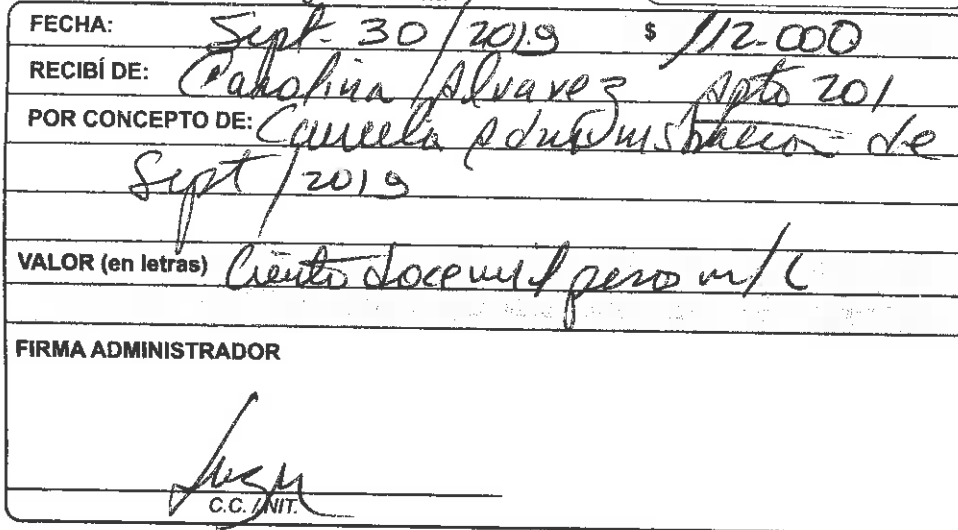 FECHA: Sept. 30/2019 $ 112.000
RECIBÍ DE: Carolina Alvarez Apto 201
POR CONCEPTO DE: Cancela Administracion de
Sept/2019
VALOR (en letras) Ciento doce mil peso m/c
FIRMA ADMINISTRADOR
C.C. / NIT.